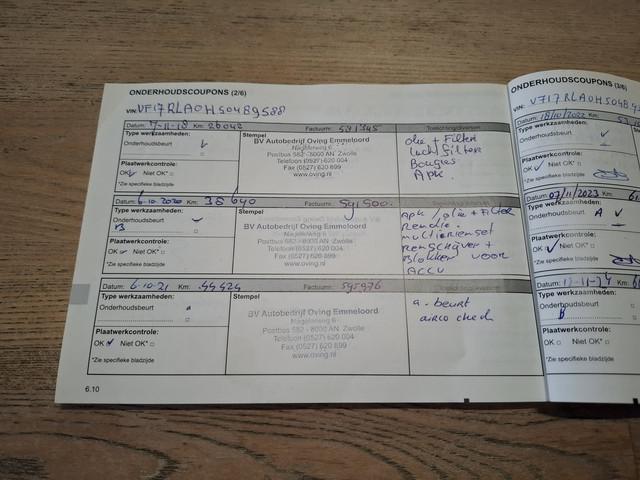 ONDERHOUDSCOUPONS (2/6)
VIN: VF17RLA0H50489588
Datum: 7-11-18 Km: 26042 Factuurnr: Toelichting/diversen
Type werkzaamheden:
Onderhoudsbeurt
Plaatwerkcontrole:
OK Niet OK*
*Zie specifieke bladzijde
Stempel
BV Autobedrijf Oving Emmeloord
Nagelerweg 6
Postbus 582 - 8000 AN Zwolle
Telefoon (0527) 620 004
Fax (0527) 620 899
www.oving.nl
olie + Filter
lucht filter
Bougies
Apk.
Datum: 6-10-2020 Km: 38640 Factuurnr.
Type werkzaamheden:
Onderhoudsbeurt
B
Plaatwerkcontrole:
OK Niet OK*
*Zie specifieke bladzijde
Stempel
BV Autobedrijf Oving Emmeloord
Nagelerweg 6
Postbus 582 - 8000 AN Zwolle
Telefoon (0527) 620 004
Fax (0527) 620 899
www.oving.nl
Apk / olie + Filter
Remschijven +
Blokken voor
ACCU
Datum: 6-10-21 44424 Factuurnr: 595976
Type werkzaamheden:
Onderhoudsbeurt
Plaatwerkcontrole:
OK Niet OK*
*Zie specifieke bladzijde
Stempel
BV Autobedrijf Oving Emmeloord
Nagelerweg 6
Postbus 582 - 8000 AN Zwolle
Telefoon (0527) 620 004
Fax (0527) 620 899
www.oving.nl
a-beurt
airco check
6.10
ONDERHOUDSCOUPONS (3/6)
VIN: VF17RLA0H504895
Datum: 18/10/2022 Km:
Type werkzaamheden:
Onderhoudsbeurt
Plaatwerkcontrole:
OK Niet OK*
*Zie specifieke bladzijde
Datum: 07/11/2023 Km:
Type werkzaamheden:
Onderhoudsbeurt A
Plaatwerkcontrole:
OK Niet OK*
*Zie specifieke bladzijde
Datum: Km:
Type werkzaamheden:
Onderhoudsbeurt
B
Plaatwerkcontrole:
OK Niet OK*
*Zie specifieke bladzijde